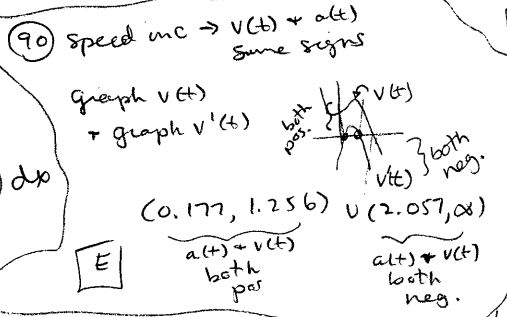 90 speed inc → v(t) + a(t)
same signs
graph v(t)
+ graph v'(t)
both pos.
v(t)
v'(t)
both neg.
dx
(0.177, 1.256) ∪ (2.057, ∞)
a(t) + v(t)
both
pos
a(t) + v(t)
both
neg.
E